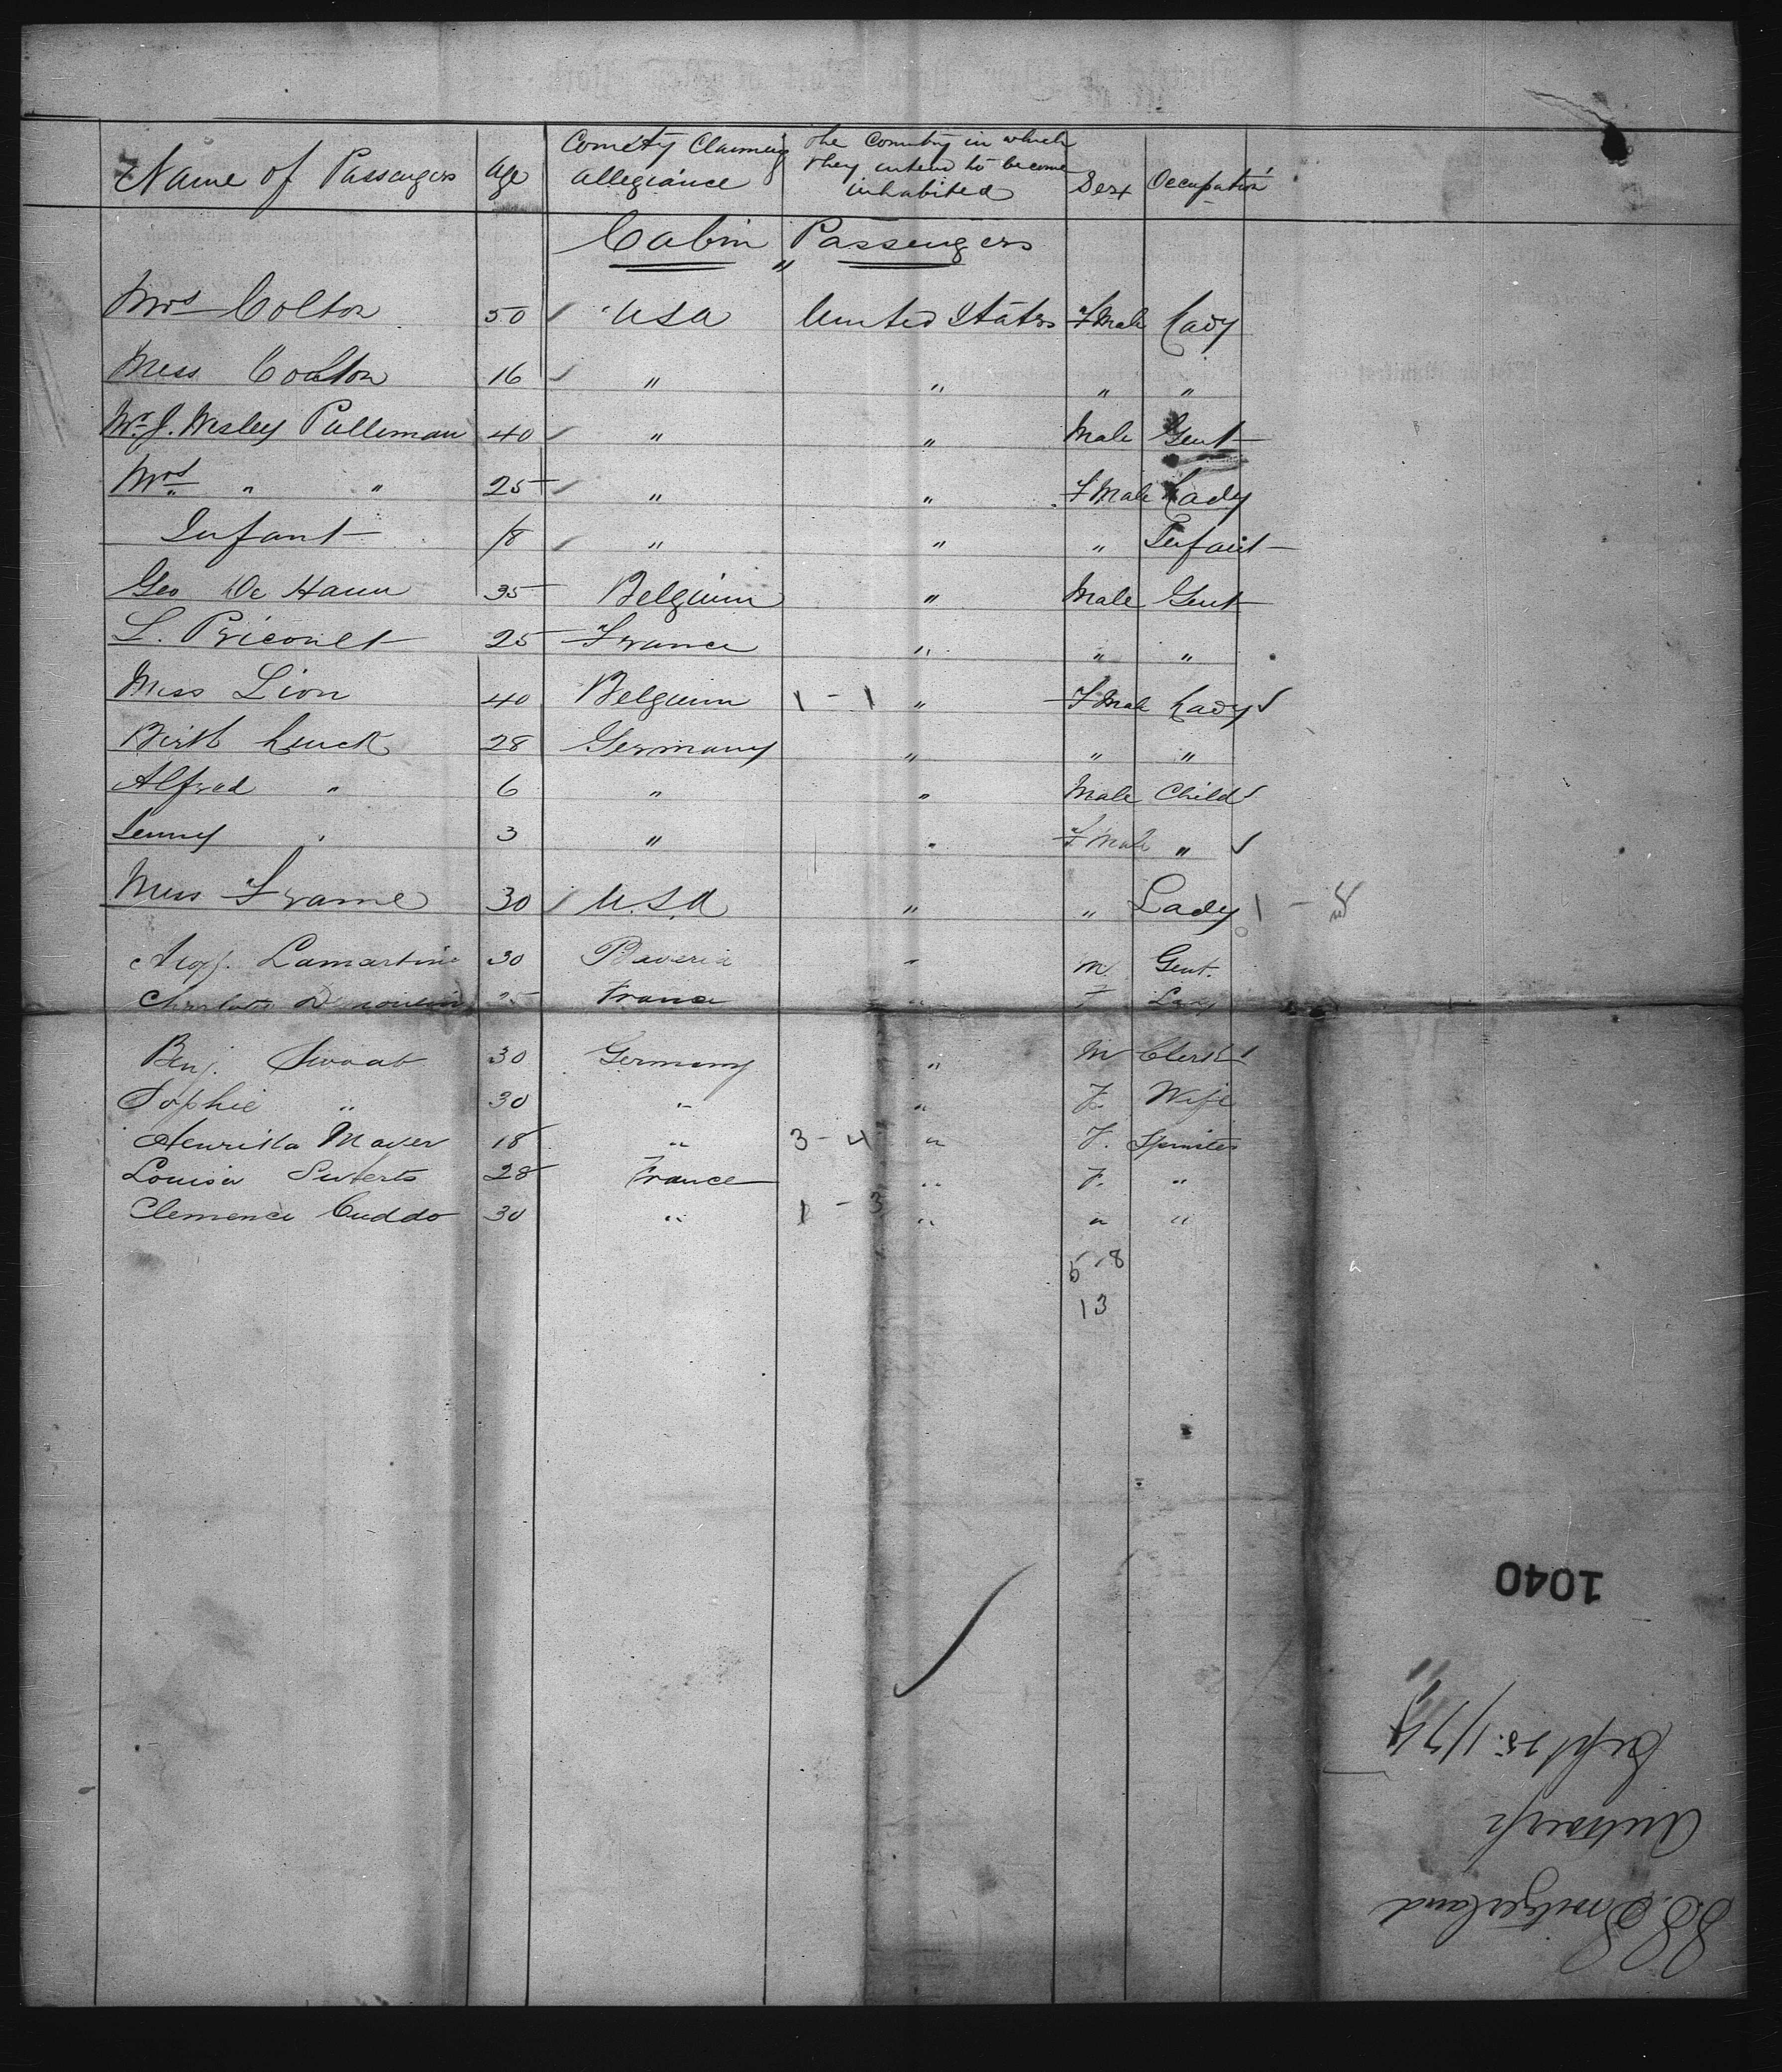 Name of Passengers Age Country Claiming allegiance The Country in which they intend to become inhabited Sex Occupation
Cabin Passengers
"
Mrs Colton 50 USA United States F Male Lady
Miss Coulton 16 " " " "
Mr J. Wesley Pulleman 40 " " Male Gent
Mrs " " 25 " " F Male Lady
Infant /8 " " " Infant
Geo De Haun 35 Belgium " Male Gent
L. Pricoult 25 France " " "
Miss Lion 40 Belgium 1 - 1 " F Male Lady
Birth Luck 28 Germany " " "
Alfred " 6 " " Male Child
Jenny " 3 " " F Male "
Miss Frame 30 U.S.A " " Lady 1 -
Lamartine 30 Bavaria " M. Gent.
Charlotte 25 France " F Lady
Benj. Swaab 30 Germany " M Clerk
Sophie " 30 " " F. Wife
Henrietta Mayer 18 " 3 - 4 " F. Spinster
Louisa 28 France " F. "
Clemence Cuddo 30 " 1 - 3 " " "
5 - 8
13
1040
Sept 25. 1874
Antwerp
S.S. Switzerland